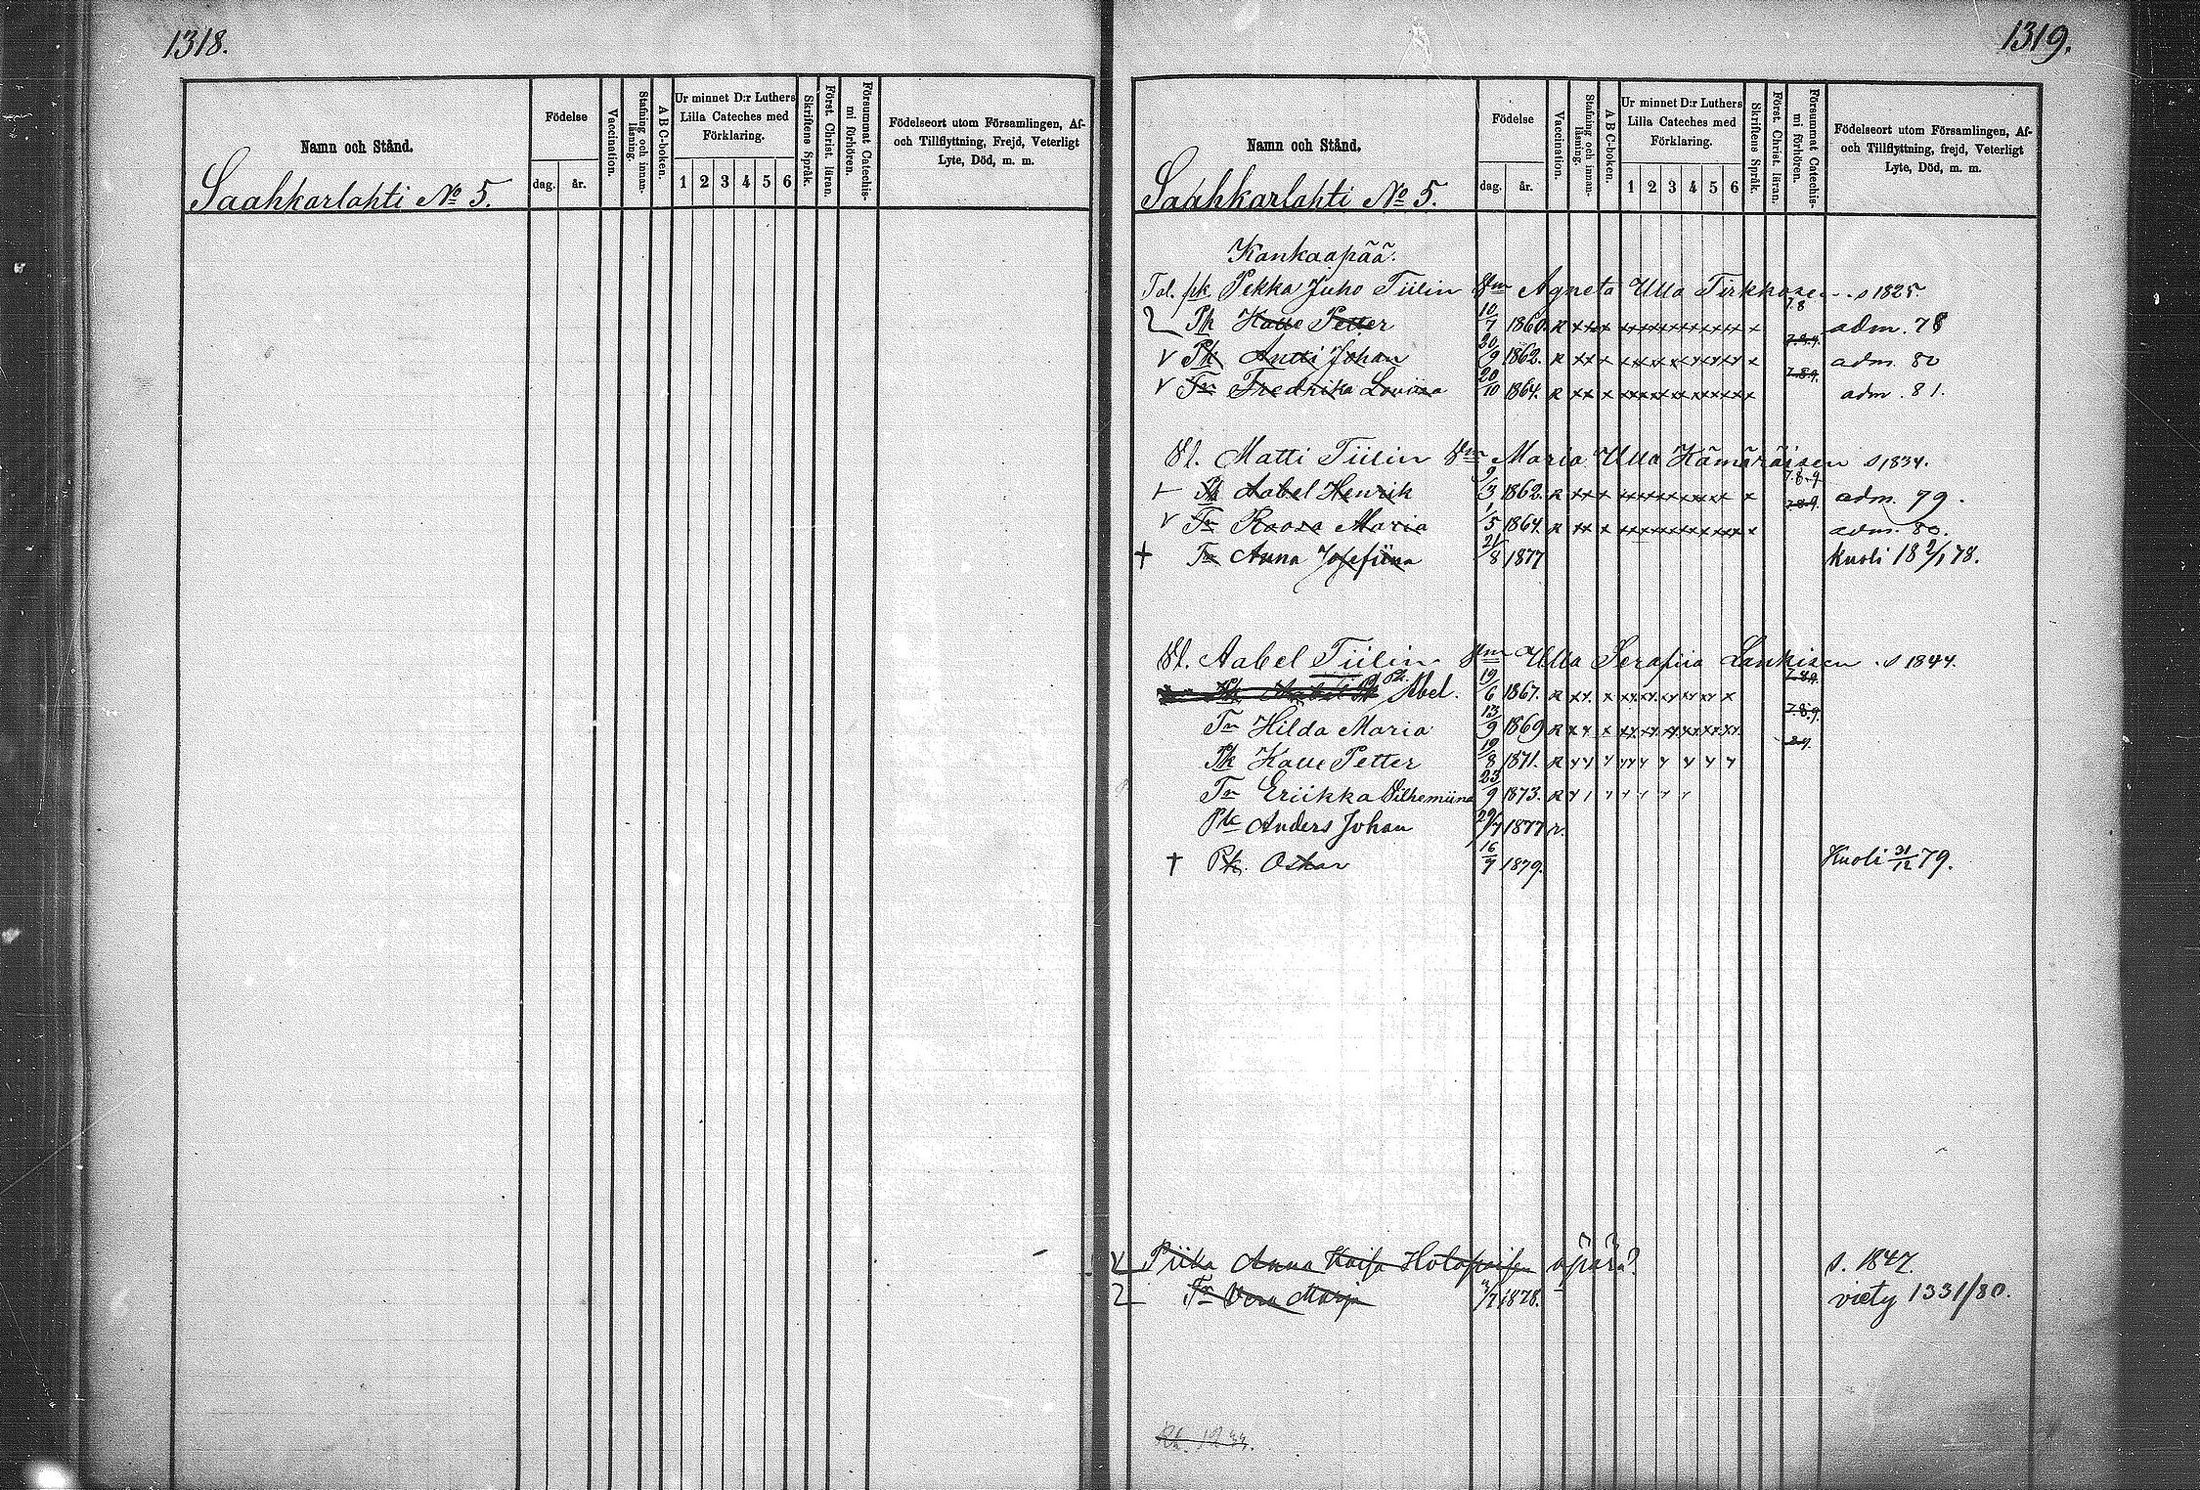 1318.
Namn och Stånd.
Födelse
dag.
år.
Vaccination.
Stafning och innan-läsning.
A B C-boken.
Ur minnet D:r Luthers
Lilla Cateches med
Förklaring.
1 2 3 4 5 6
Skriftens Språk.
Först. Christ. läran.
Försummat Catechis-mi förhören.
Födelseort utom Församlingen, Af-
och Tillflyttning, Frejd, Veterligt
Lyte, Död, m. m.
Saahkarlahti No 5.
1319.
Namn och Stånd.
Födelse
dag.
år.
Vaccination.
Stafning och innan-läsning.
A B C-boken.
Ur minnet D:r Luthers
Lilla Cateches med
Förklaring.
1 2 3 4 5 6
Skriftens Språk.
Först. Christ. läran.
Försummat Catechis-mi förhören.
Födelseort utom Församlingen, Af-
och Tillflyttning, frejd, Veterligt
Lyte, Död, m. m.
Saahkarlahti No 5.
Kankaapää.
Tal. pk. Pekka Juho Tiilin Vm Agneta Ulla Tirkkosen s 1825.
Pk Kalle Petter 10/7 1860. R 7.8 adm. 78
Pk Antti Johan 20/9 1862. R 7.8.9. adm. 80
Tr Fredrika Loviisa 20/10 1864. R 7.8.9. adm. 81.
Vl. Matti Tiilin Vm Maria Ulla Kämäräisen s 1834.
Pk Aabel Henrik 9/3 1862. R 7.8.9 adm. 79.
Tr Roosa Maria 1/5 1864. R 7.8.9. adm. 80.
+ Tr Anna Josefiina 21/8 1877 Kuoli 18 2/1 78.
Vl. Aabel Tiilin Vm Ulla Serafiia Lankisen s 1844.
Abel. 19/6 1867. R 7.8.9.
Tr Hilda Maria 13/9 1869 R 7.8.9.
Pk Kalle Petter 19/8 1871. R 8.9.
Tr Eriikka Vilhemiina 23/9 1873. R
Pk Anders Johan 29/7 1877 r.
† Pk. Oskar 16/9 1879. Kuoli 31/12 79.
Piika Anna Kaisa Hotapaisen äpärä? s. 1847.
Tr Vera Marja 3/7 1878. viety 1331/80.